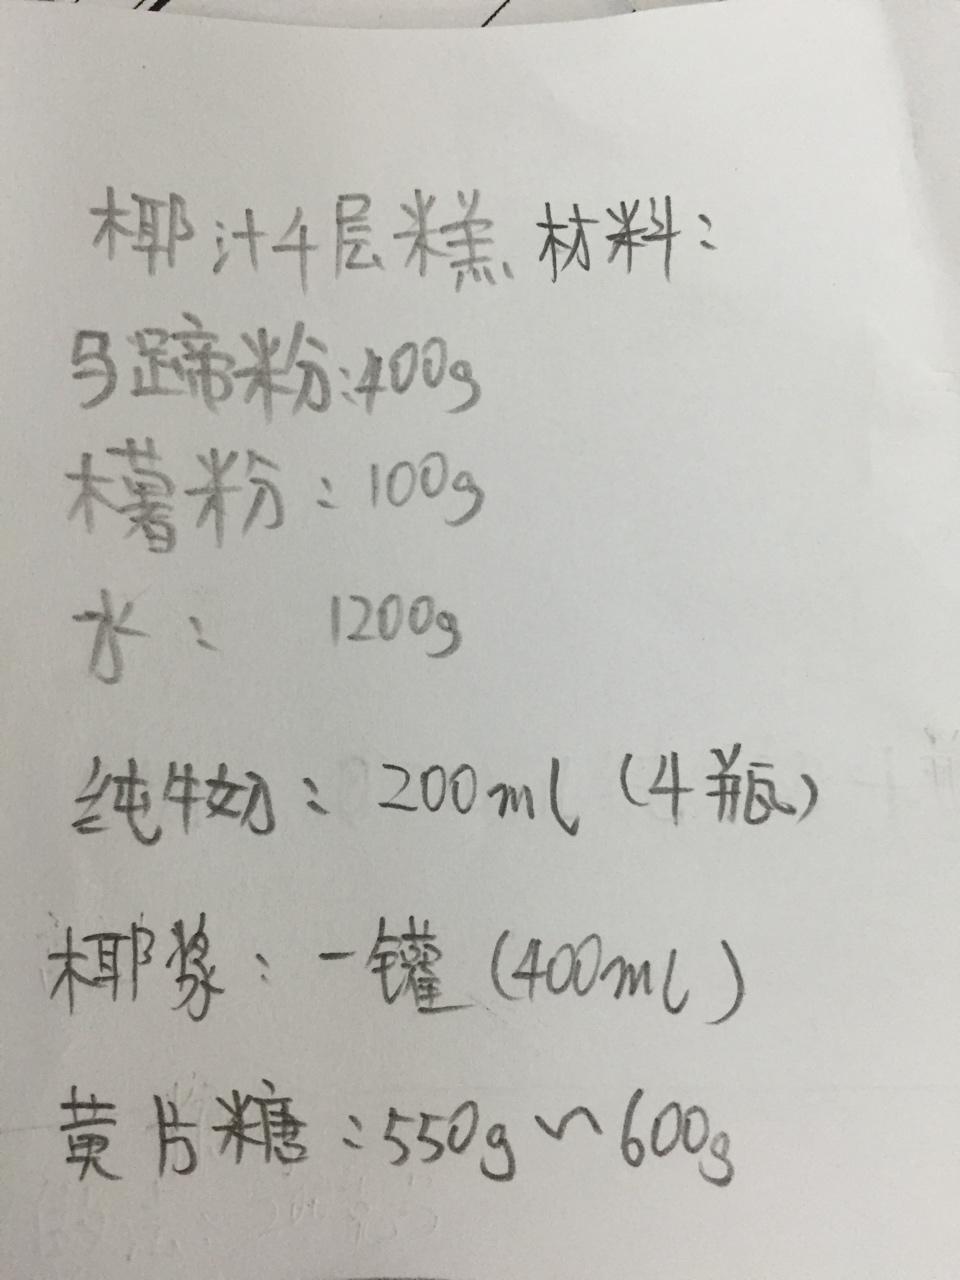 椰汁千层糕材料：
马蹄粉：400g
木薯粉：100g
水： 1200g
纯牛奶：200ml（4瓶）
椰浆：一罐（400ml）
黄片糖：550g～600g